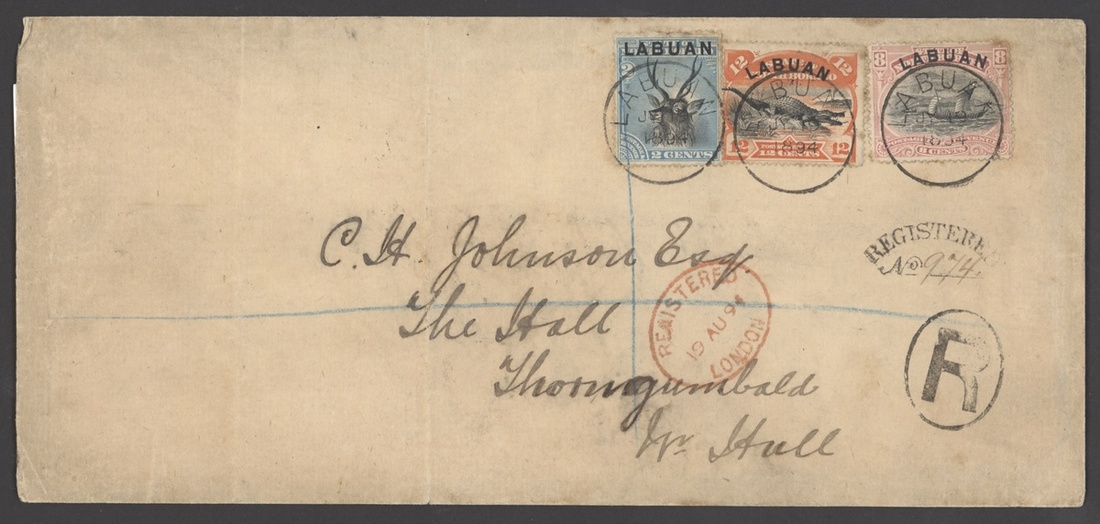 LABUAN
2
2 CENTS
LABUAN
1894
12 12
LABUAN
12 CENTS
12 12
LABUAN
1894
8 8
LABUAN
CENTS
LABUAN
1894
REGISTERED
No 974.
C. H. Johnson Esq.
The Hall
Thorngumbald
Nr Hull
REGISTERED
19 AU 94
LONDON
R